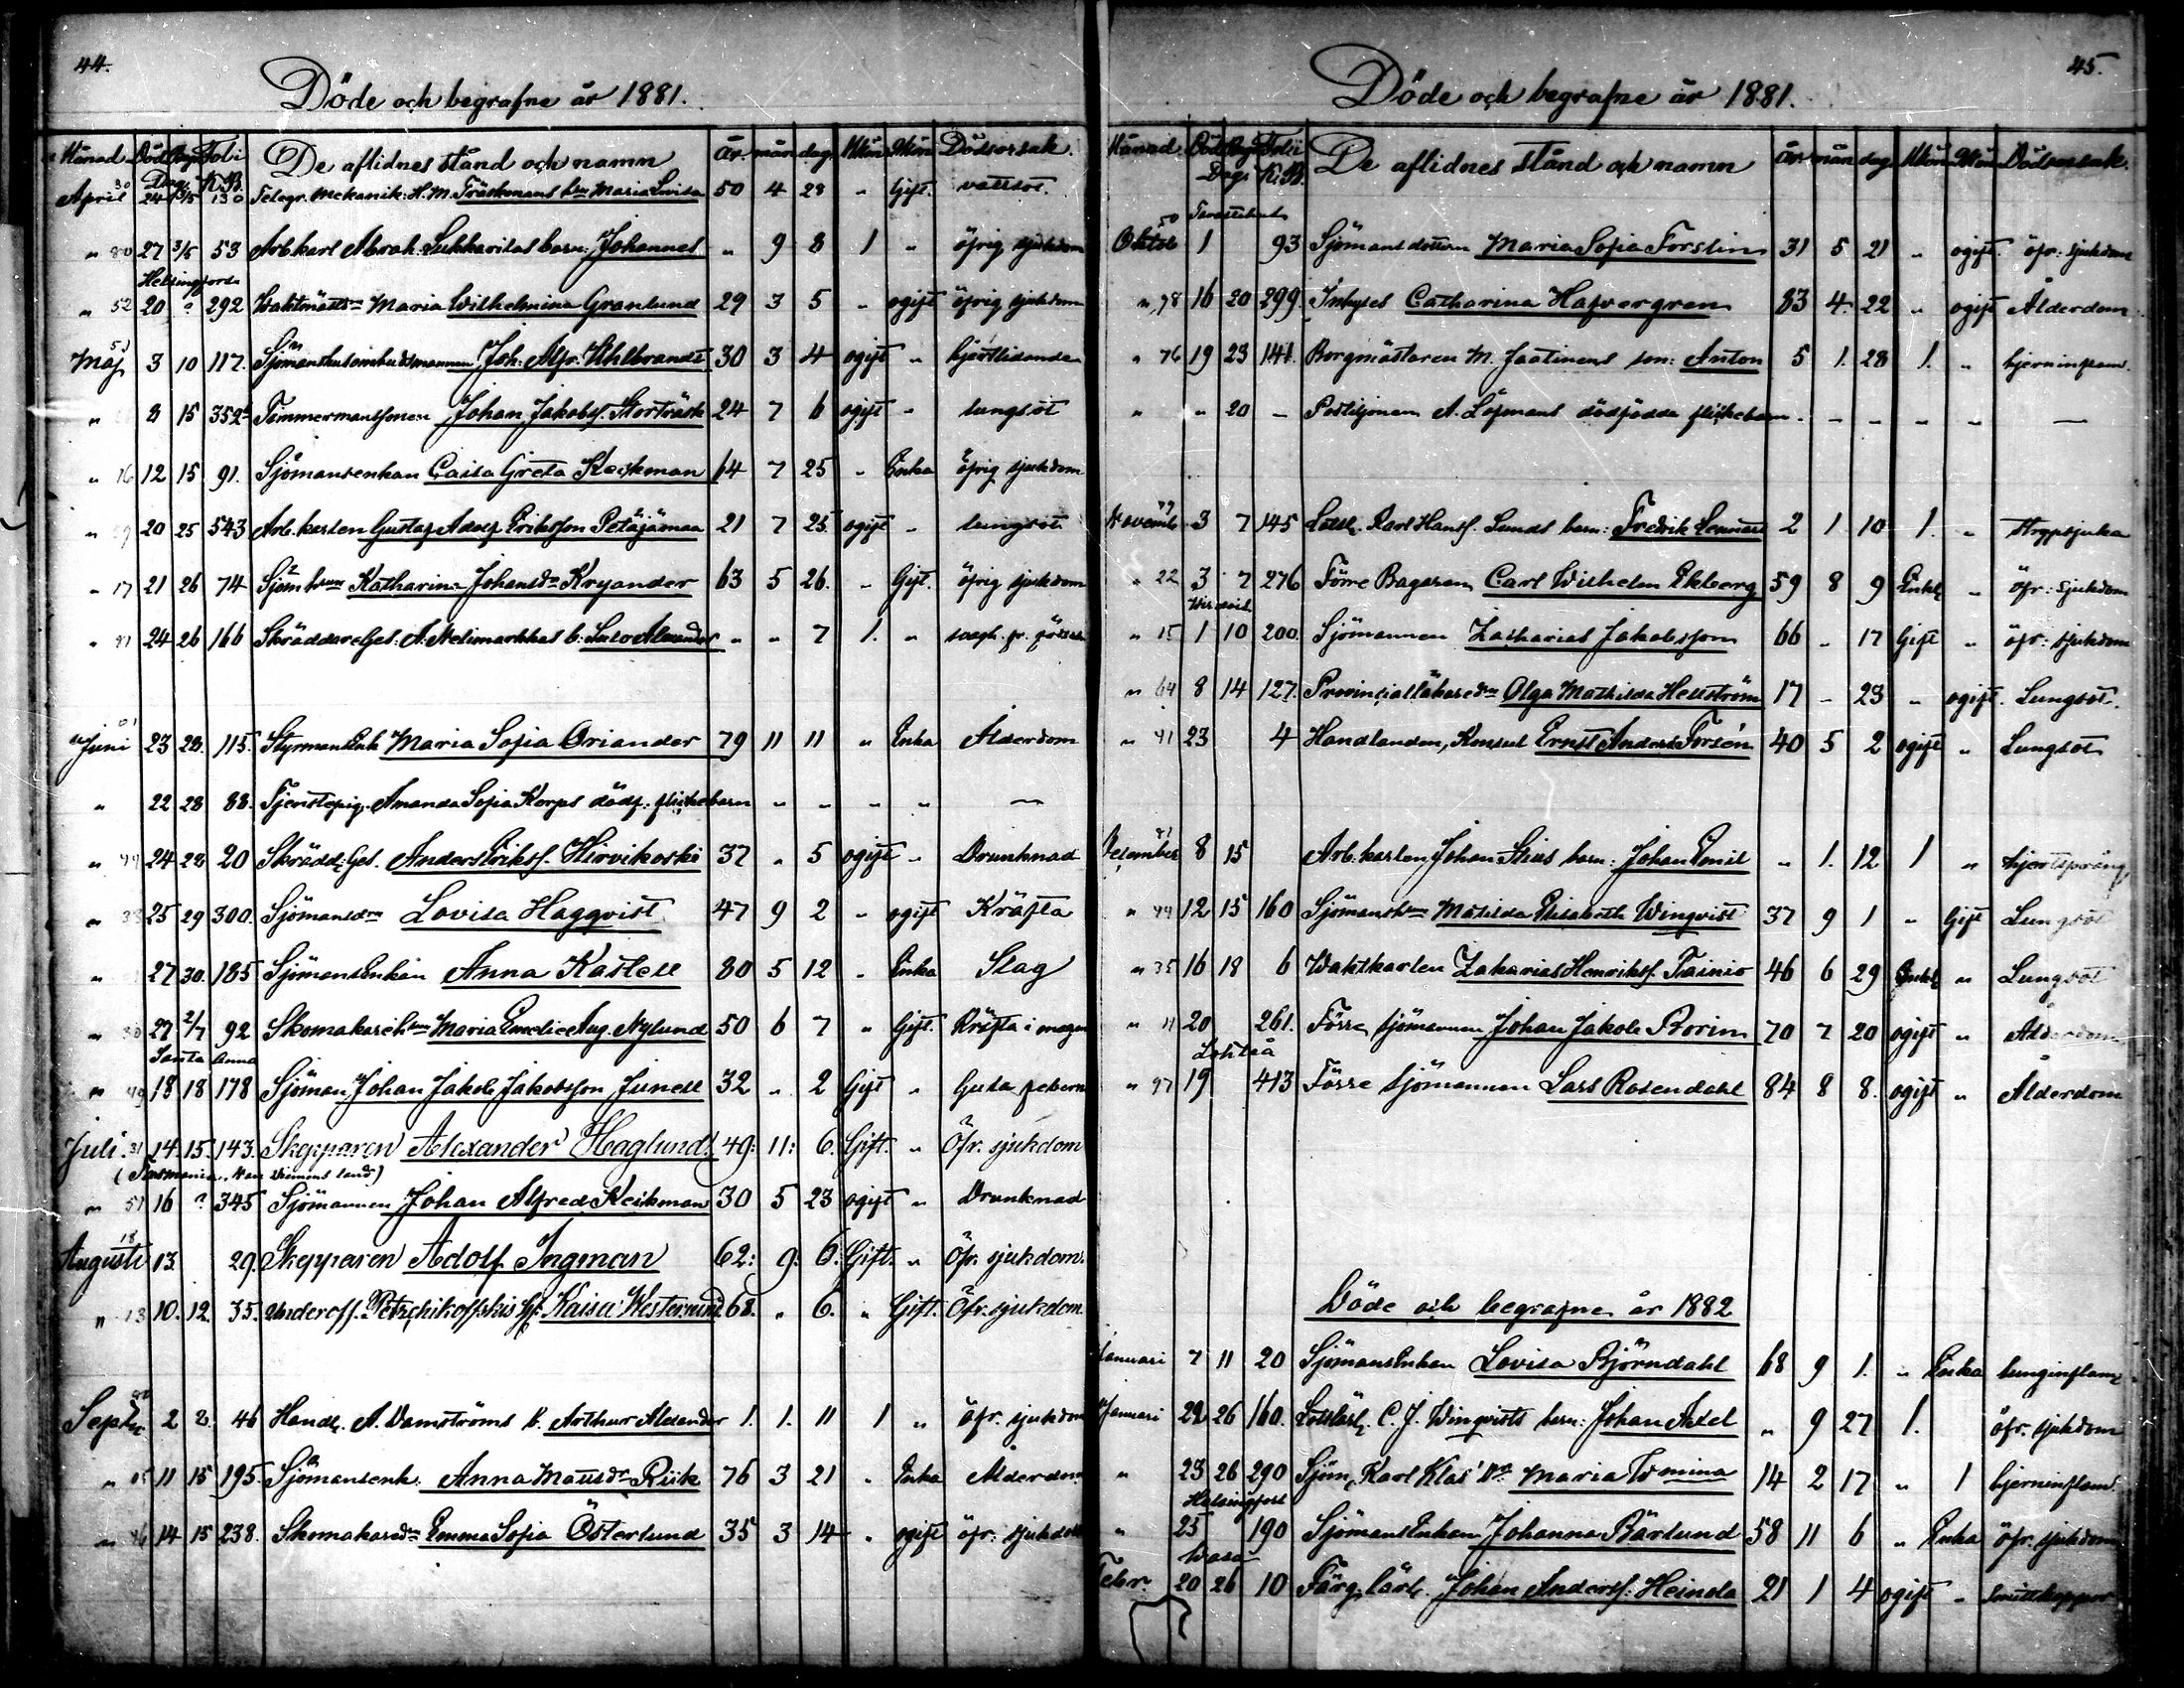 44.
Döde och begrafne år 1881.
Månad Död Begr. Folio De aflidnes stånd och namn År. mån dag. Mkön Qkön Dödsorsak.
Dag. K.B.
April 30 24 3/5 130 Telegr. mekanik. H. M. Träskmans hru Maria Lovisa 50 4 28 " Gift. vattsot.
" 80 27 3/5 53 Arb. karl Abrah. barn: Johannes " 9 8 1 " öfrig sjukdom
Helsingfors
" 52 20 ? 292 Waktmästs Maria Wilhelmina Granlund 29 3 5 " ogift öfrig sjukdom
Maj 51 3 10 117. Joh. Alfr. Wihlbrandt 30 3 4 ogift " hjertlidande
" 8 15 352 Timmermanssonen Johan Jakobss. Storträsk 24 7 6 ogift " lungsot
" 16 12 15 91. Sjömansenkan Caisa Greta Keckman 64 7 25 " Enka öfrig sjukdom
" 59 20 25 543 Arb. karlen Gustaf Adolf Eriksson Petäjämaa 21 7 25 ogift " lungsot
" 17 21 26 74 Sjöm. hrun Katharina Johansdr Kryander 63 5 26. " Gift. öfrig sjukdom
" 24 26 166 Skräddare Ges. A. b: " " 7 1. "
Juni 01 23 28. 115. Styrman Enk Maria Sofia Oriander 79 11 11 " Enka Ålderdom
" 22 28 88. Tjenstepig. Amanda Sofia Korps dödf. flickebarn " " " " —
" 44 24 28 20 Skrädd. Ges. Anders Erikss. Hirvikoski 37 " 5 ogift " Drunknad
" 33 25 29 300. Sjömansdrn Lovisa Hagqvist 47 9 2 " ogift Kräfta
" 27 30. 185 Sjömans Enkan Anna Kastell 80 5 12 " Enka Slag
" 30 27 2/7 92 Skomakareh Maria Emelie Aug. Nylund 50 6 7 " Gift. Kräfta i magen
Santa Anna
" 49 18 18 178 Sjöman Johan Jakob Jakobsson Junell 32 " 2 Gift " Gula febern
Juli. 31 14. 15. 143. Skepparen Alexander Haglund. 49: 11: 6. Gift. " Öfr. sjukdom
(Tasmania, Van Diemens land)
" 51 16 ? 345 Sjömannen Johan Alfred Keckman 30 5 23 ogift " Drunknad
Augusti 18 13. 29. Skepparen Adolf Ingman 62: 9. 6. Gift. " Öfr. sjukdom.
" 13 10. 12. 35. Underoff. Petschikoffskis h: Kaisa Westerlund 68. " 6. " Gift. Öfr. sjukdom.
Septr 80 2 2. 46 Handl. A. Damströms b. Arthur Alexander 1. 1. 11 1 " öfr. sjukdom
" 05 11 15 195. Sjömansenk. Anna Matsdr Riik 76 3 21 " Enka Ålderdom
" 46 14 15 238. Skomakaredr Emma Sofia Österlund 35 3 14 " ogift öfr. sjukdom
45.
Döde och begrafne år 1881.
Månad Död Begr. Folio De aflidnes stånd och namn År mån dag. Mkön Qkön Dödsorsak.
Dag. K.B.
Tavastehus
Oktob 50 1 93 Sjömansdottern Maria Sofia Forslin 31 5 21 " ogift. öfr: sjukdom
" 98 16 20 299 Inhyses Catharina Hafvergren 83 4. 22 " ogift Ålderdom
" 76 19 23 141. Borgmästaren M. Jaatinens son: Anton 5 1. 28 1. " hjerninflam.
" " 20 – Postiljonen A. Löfmans dödfödda flickebarn. – – – – —
Novemb 79 3 7 145 Lotsl. Karl Hanss. Lunds barn: Fredrik Lennart 2 1 10 1. " Strypsjuka
" 22 3 7 276 Förre Bagaren Carl Wilhelm Ekberg 59 8 9 Enkl. " öfr: sjukdom
" 15 1 10 200. Sjömannen Zacharias Jakobsson 66 " 17 Gift " öfr: sjukdom
" 64 8 14 127. Provinsialläkaredr Olga Mathilda Hellström 17 – 23 " ogift. Lungsot.
" 41 23 4 Handlanden, Konsul Ernst Anders Forsén 40 5 2 ogift " Lungsot
December 81 8 15 Arb. karlen Johan barn: Johan Emil " 1. 12 1 " hjertsprång
" 44 12 15 160 Sjömansh Matilda Elisabeth Winqvist 37 9 1 " Gift Lungsot
" 35 16 18 6 Waktkarlen Zakarias Henrikss. Tainio 46 6 29 Enkl. " Lungsot
" 11 20 261. Förre sjömannen Johan Jakob Borin 70 7 20 ogift " Ålderdom
Lohteå
" 97 19 413 Förre sjömannen Lars Rosendahl 84 8 8. ogift " Ålderdom
Döde och begrafne år 1882
Januari 7 11 20 Sjömans Enkan Lovisa Björndahl 68 9 1. " Enka lunginflam.
Januari 22 26 160. C. J. Winqvists barn: Johan Axel " 9 27 1. öfr. sjukdom
" 23 26 290 Sjöm. Karl Klas' dr Maria Wmina 14 2 17 " 1 hjerninflam.
Helsingfors
" 25 190 Sjömans Enkan Johanna Bärlund 58 11 6 " Enka öfr. sjukdom
Wasa
Febr. 20 26 10 Färg. lärl. Johan Anderss. Heinda 21 1 4 ogift " Smittkoppor